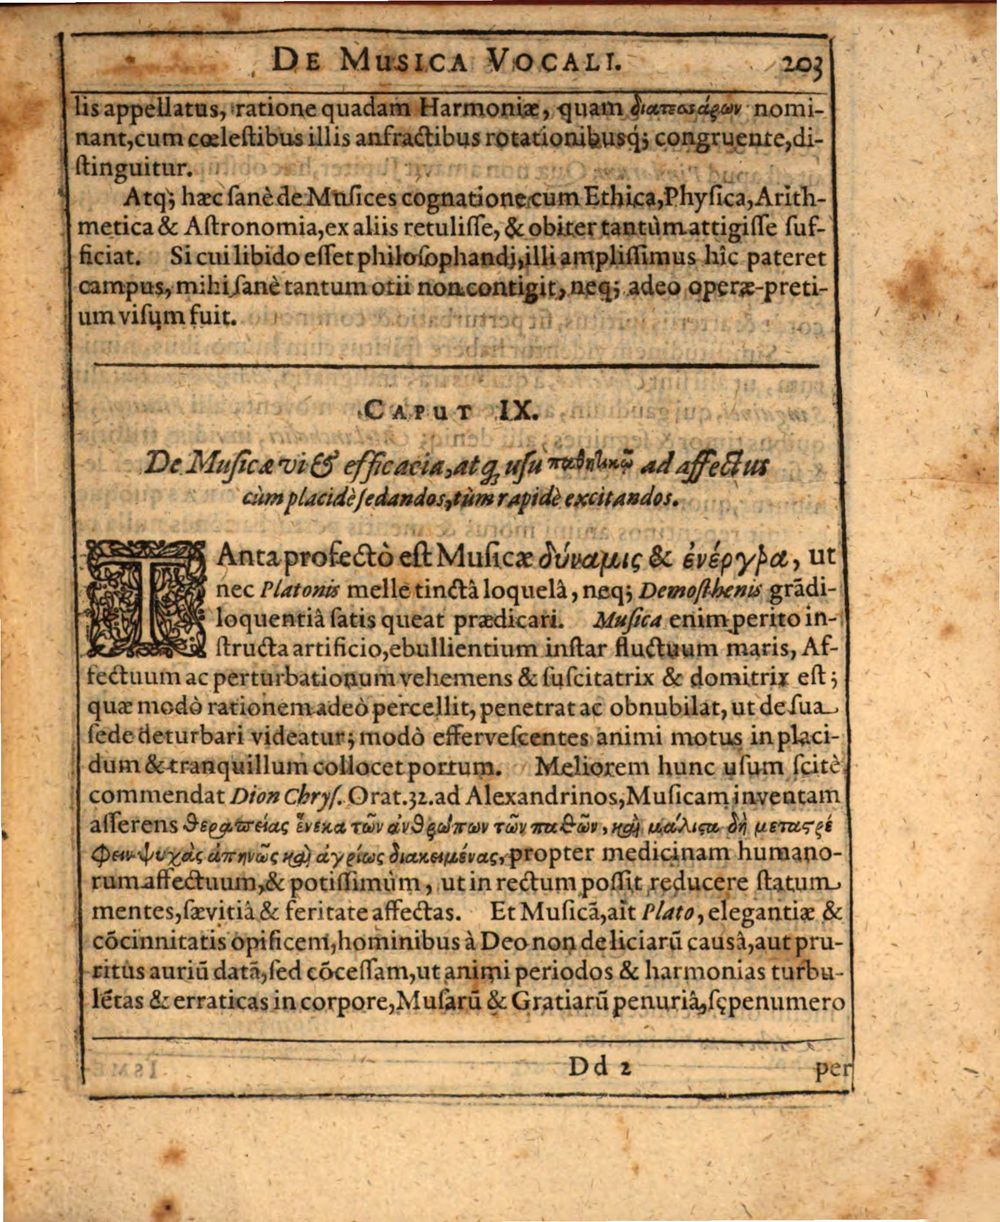 DE MUSICA VOCALI. 203
lis appellatus, ratione quadam Harmoniæ, quam διατεσσάρων nomi-
nant, cum cœlestibus illis anfractibus rotationibusq; congruente, di-
stinguitur.
Atq; hæc sanè de Musices cognatione cum Ethica, Physica, Arith-
metica & Astronomia, ex aliis retulisse, & obiter tantùm attigisse suf-
ficiat. Si cui libido esset philosophandi, illi amplissimus hîc pateret
campus, mihi sanè tantum otii non contigit, neq; adeo operæ-preti-
um visum fuit.
CAPUT IX.
De Musicæ vi & efficacia, atq; usu παθητικῷ ad affectus
cùm placidè sedandos, tùm rapidè excitandos.
TAnta profectò est Musicæ δύναμις & ἐνέργεια, ut
nec Platonis melle tinctâ loquelâ, neq; Demosthenis grãdi-
loquentiâ satis queat prædicari. Musica enim perito in-
structa artificio, ebullientium instar fluctuum maris, Af-
fectuum ac perturbationum vehemens & suscitatrix & domitrix est;
quæ modò rationem adeò percellit, penetrat ac obnubilat, ut de sua
sede deturbari videatur; modò effervescentes animi motus in placi-
dum & tranquillum collocet portum. Meliorem hunc usum scitè
commendat Dion Chrys. Orat. 32. ad Alexandrinos, Musicam inventam
asserens θεραπείας ἕνεκα τῶν ἀνθρώπων τῶν παθῶν, καὶ μάλιστα δὴ μεταστρέ
φειν ψυχὰς ἀπηνῶς καὶ ἀγρίως διακειμένας, propter medicinam humano-
rum affectuum, & potissimùm, ut in rectum possit reducere statum
mentes, sævitiâ & feritate affectas. Et Musicã, ait Plato, elegantiæ &
cõcinnitatis opificem, hominibus à Deo non deliciarũ causâ, aut pru-
ritus auriũ datã, sed cõcessam, ut animi periodos & harmonias turbu-
lẽtas & erraticas in corpore, Musarũ & Gratiarũ penuriâ, sępenumero
Dd 2 per